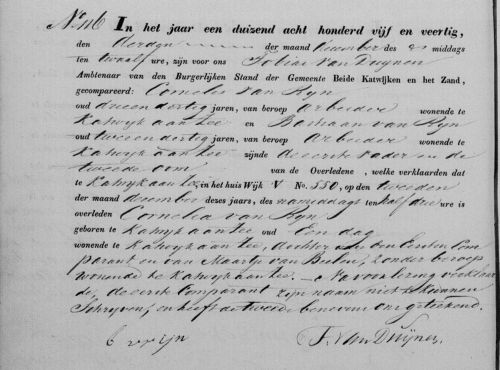 No 116 In het jaar een duizend acht honderd vijf en veertig,
den derden der maand December des middags
ten twaalf ure, zijn voor ons Tobias van Duynen
Ambtenaar van den Burgerlijken Stand der Gemeente Beide Katwijken en het Zand,
gecompareerd: Cornelis van Ryn
oud drieendertig jaren, van beroep Arbeider wonende te
Katwyk aan Zee en Bastiaan van Ryn
oud tweeendertig jaren, van beroep Arbeider wonende te
Katwyk aan Zee zijnde de eerste vader en de
tweede oom van de Overledene, welke verklaarden dat
te Katwyk aan Zee in het huis Wijk V No. 550, op den tweeden
der maand december dezes jaars, des namiddags ten half drie ure is
overleden Cornelia van Ryn
geboren te Katwyk aan Zee oud Een dag
wonende te Katwyk aan Zee, dochter van den eersten Com
parant en van Maartje van Beelen, zonder beroep
wonende te Katwyk aan Zee. — Na voorlezing verklaar
de, de eerste Comparant zijn naam niet te kunnen
Schryven, en heeft de tweede benevens ons geteekend.
B v rijn T. van Duijnen.